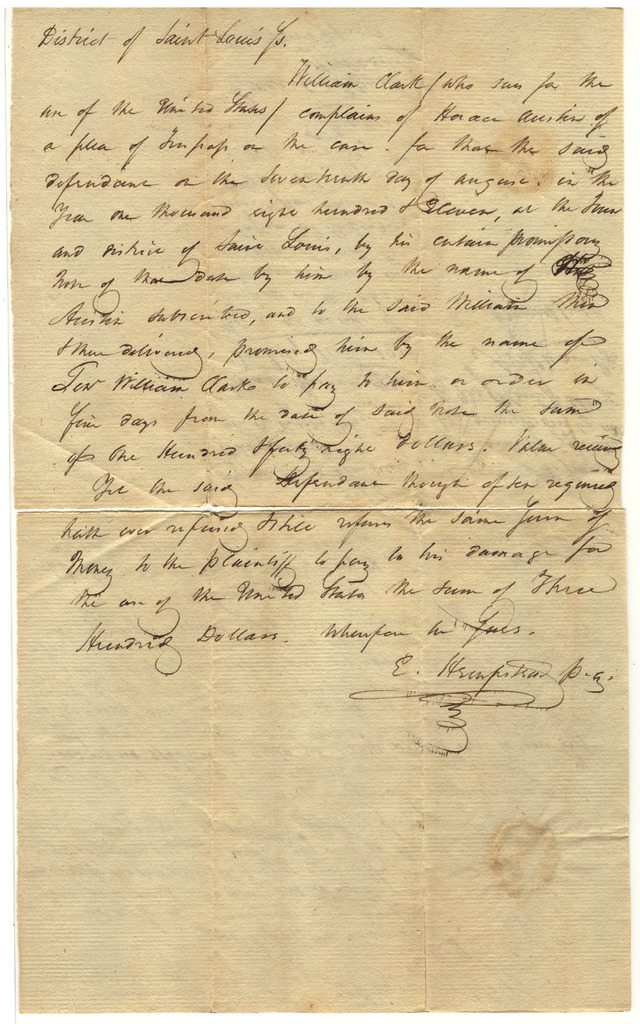 District of Saint Louis ss.
William Clark (who sues for the
use of the United States) complains of Horace Austin of
a plea of Trespass on the case. for that the said
defendant on the Seventeenth day of august. in the
Year one thousand eight hundred & Eleven, at the Town
and district of Saint Louis, by his certain promissory
Note of that date by him by the name of
Austin subscribed, and to the said William then
& there delivered, promised him by the name of
William Clark to pay to him or order in
days from the date of said Note the sum
of One Hundred & forty eight Dollars. Value received
Yet the said Defendant though often required
hath ever refused & still refuses the same sum of
Money to the plaintiff to pay to his damage for
the use of the United States the sum of Three
Hundred Dollars. wherefore he sues.
E. Hempstead p. q.